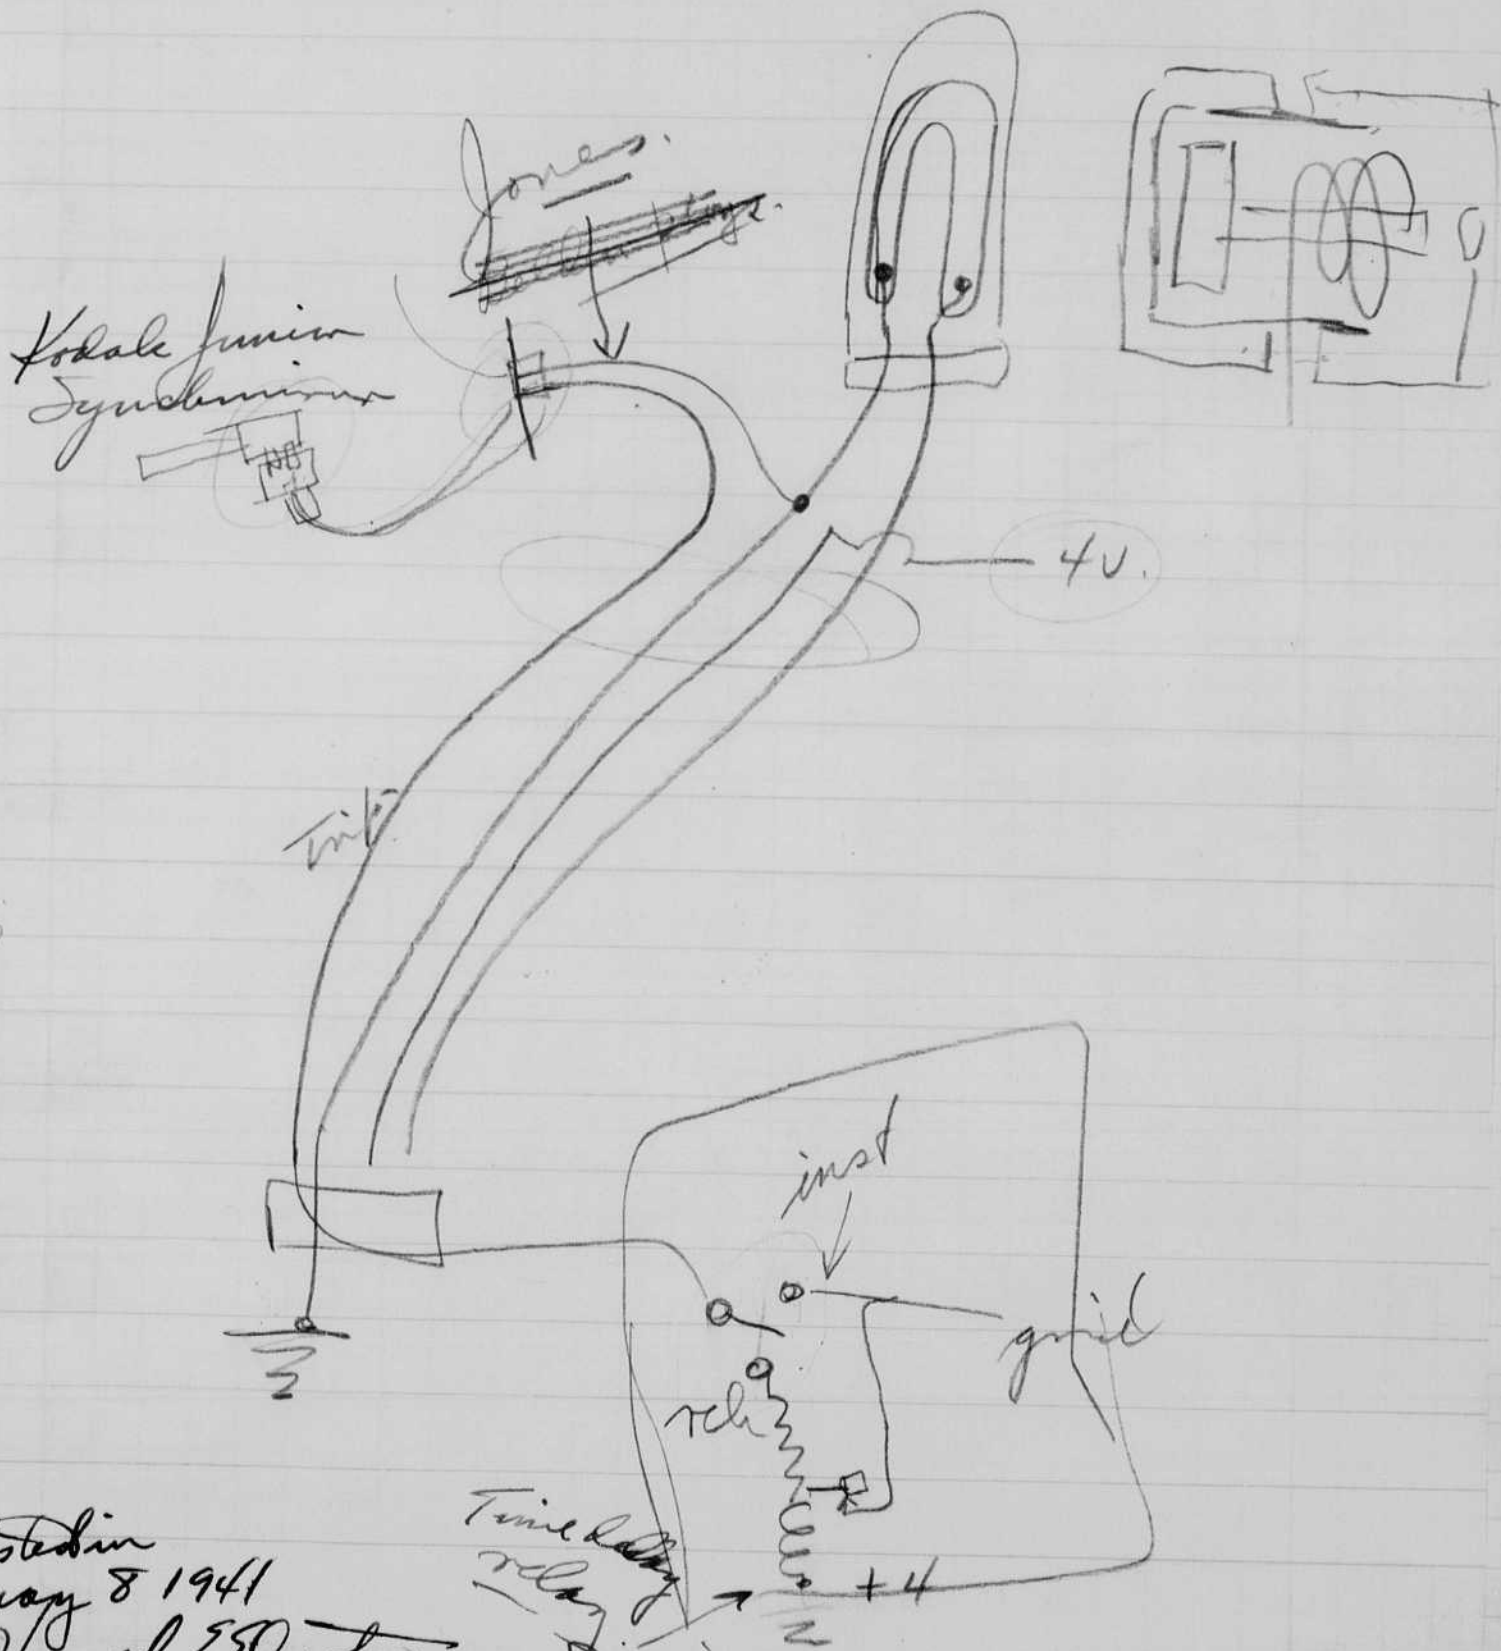 Jones.
Kodak Junior
Synchronizer
4v.
Init.
inst
grid
rel
Time delay
relay
+4
8 1941